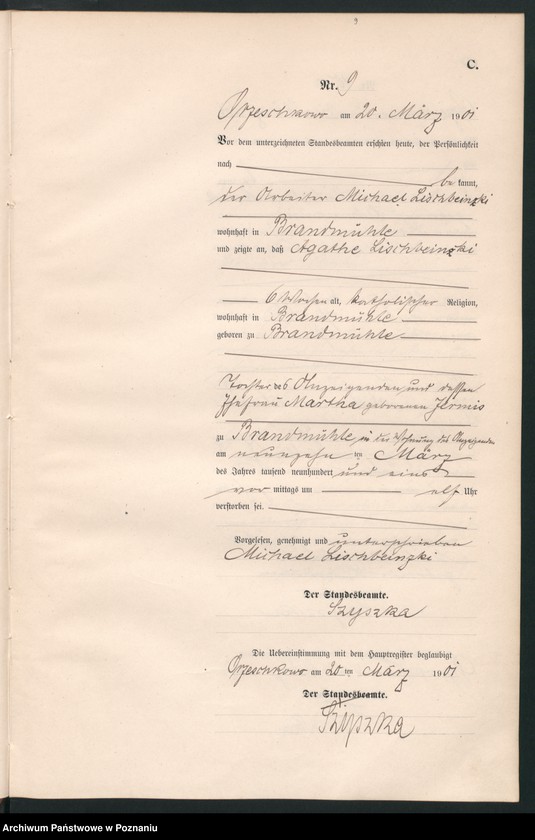 C.
Nr. 9
Orzeschkowo am 20. März 1901
Vor dem unterzeichneten Standesbeamten erschien heute, der Persönlichkeit
nach be kannt,
der Arbeiter Michael Lischbeinzki
wohnhaft in Brandmühle
und zeigte an, daß Agathe Lischbeinzki
6 Wochen alt, katholischer Religion,
wohnhaft in Brandmühle
geboren zu Brandmühle
Tochter des Anzeigenden und dessen
Ehefrau Martha geborenen Jermis
zu Brandmühle in der Wohnung des Anzeigenden
am neunzehn ten März
des Jahres tausend neunhundert und eins
vor mittags um elf Uhr
verstorben sei.
Vorgelesen, genehmigt und unterschrieben
Michael Lischbeinzki
Der Standesbeamte.
Szyszka
Die Uebereinstimmung mit dem Hauptregister beglaubigt
Orzeschkowo am 20 ten März 1901
Der Standesbeamte.
Szyszka
Archiwum Państwowe w Poznaniu